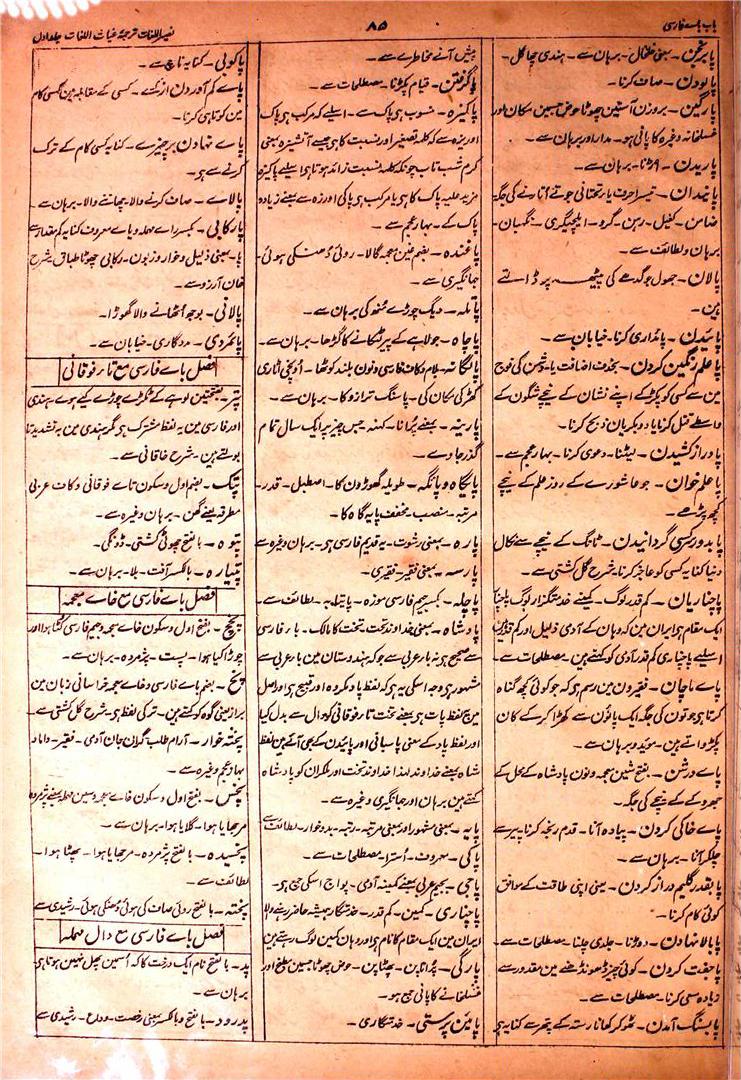 باب بائے فارسی
۸۵
نصیر اللغات ترجمۂ غیاث اللغات جلد اول
پابرنجن۔ بمعنی خلخال۔ برہان سے۔ ہندی چھاگل۔
پالودن۔ صاف کرنا۔
پارگین۔ بروزن آستین چھوٹا حوض جسمین مکان اور
غسلخانہ وغیرہ کا پانی ہو۔ مدار اور برہان سے۔
پاریدن۔ برہان سے۔
پائیدان۔ تیسرا حرف یائے تحتانی جوتے اُتارنے کی جگہ
ضامن۔ کفیل۔ رہن۔ گرو۔ ایلچیگری۔ نگہبان۔
برہان ولطائف سے۔
پالان۔ جھول جو گدھے کی پیٹھ پر ڈالتے
ہین۔
پائیدن۔ پائداری کرنا۔ خیابان سے۔
پا علم رنگین کردن۔ بحذف اضافت یا دشمن کی فوج
مین سے کسی کو پکڑ کے اپنے نشان کے نیچے شگون کے
واسطے قتل کرنا یا دو بکریان ذبح کرنا۔
پا دراز کشیدن۔ لیٹنا۔ دعوی کرنا۔ بہار عجم سے۔
پا علم خوان۔ جو عاشورے کے روز علم کے نیچے
کچھ پڑھے۔
پا بدور کرسی گردانیدن۔ ٹانگ کے نیچے سے نکال
دینا کنایہ کسی کو عاجز کرنا۔ شرح گل کشتی سے۔
پاچناریان۔ کم قدر لوگ۔ کمینے خدمتگزار لوگ پاچنار
ایک مقام ہی ایران مین کہ وہان کے آدمی ذلیل اور کم قدر ہین
اسلیے پاچناری کم قدر آدمی کو کہتے ہین۔ مصطلحات سے۔
پاے ماچان۔ فقیرون مین رسم ہی کہ جو کوئی کچھ گناہ
کرتا ہی جوتون کی جگہ ایک پاؤن سے کھڑا کر کے کان
پکڑواتے ہین۔ موید وبرہان سے۔
پاے درشن۔ بفتح شین معجمہ ونون پادشاہ کے محل کے
جھروکے کے نیچے کی جگہ۔
پاے خاکی کردن۔ پیادہ آنا۔ قدم رنجہ کرنا پیر سے
چلکر آنا۔ برہان سے۔
پا بقدر گلیم دراز کردن۔ یعنی اپنی طاقت کے موافق
کوئی کام کرنا۔
پا بالا نہادن۔ دوڑنا۔ جلدی چلنا۔ مصطلحات سے۔
پا جفت کردن۔ کوئی چیز ڈھونڈھنے مین مقدور سے
زیادہ سعی کرنا۔ مصطلحات سے۔
پا بسنگ آمدن۔ ٹھوکر کھانا رستہ کے پتھر سے کنایہ ہی
پیش آنے مخاطرے سے۔
پا گرفتن۔ قیام پکڑنا۔ مصطلحات سے۔
پاکیزہ۔ منسوب ہی پاک سے۔ اسلیے کہ مرکب ہی پاک
اور یزہ سے کہ کلمہ تصغیر اور نسبت کا ہی جیسے آتشیزہ بمعنی
کرم شب تاب چونکہ کلمہ نسبت زائد ہوتا ہی اسلیے پاکیزہ
مزید علیہ پاک کا ہی یا مرکب ہی پاکی اور زہ سے بمعنی زیادہ
پاک کے۔ بہار عجم سے۔
پاغندہ۔ بضم غین معجمہ گالا۔ روئی دُھنکی ہوئی۔
جہانگیری سے۔
پاتلہ۔ دیگ چوڑے منھ کی برہان سے۔
پاچاہ۔ جولاہے کے پیر لٹکانے کا گڑھا۔ برہان سے۔
پالگانہ۔ بلام وکاف فارسی ونون بلند کوٹھا۔ اونچی اٹاری
کھڑکی مکان کی۔ پاسنگ ترازو کا۔ برہان سے۔
پارینہ۔ بمعنے پُرانا۔ کہنہ۔ جس چیز پر ایک سال تمام
گذر جاوے۔
پایگاہ وپائگہ۔ طویلہ گھوڑون کا۔ اصطبل۔ قدر۔
مرتبہ۔ منصب۔ مخفف پایہ گاہ کا۔
پارہ۔ بمعنی رشوت۔ یہ قدیم فارسی ہی۔ برہان وغیرہ سے
پارسہ۔ بمعنی فقیر۔ فقیری۔
پاچلہ۔ بکسر جیم فارسی موزہ۔ یا پتابہ۔ لطائف سے۔
پادشاہ۔ بمعنی خداوند تخت، تخت کا مالک۔ بائے فارسی
سے صحیح ہی نہ بائے عربی سے جو کہ ہندوستان مین بائے عربی سے
مشہور ہی وجہ اسکی یہ ہی کہ لفظ پاد مکروہ اور قبیح ہی اور اصل
مین یہ لفظ پات ہی بمعنی تخت تائے فوقانی کو دال سے بدل کیا
اور لفظ پاد کے معنی پاسبانی اور پائیدن کے بھی آئے ہین لفظ
شاہ بمعنے خداوند لہذا خداوند تخت اور ملکران کو پادشاہ
کہتے ہین برہان اور جہانگیری وغیرہ سے۔
پایہ۔ بمعنی مشہور اور بمعنی مرتبہ۔ رتبہ۔ بدوخوار۔ لطائف سے
پاکی۔ معروف۔ اُسترا۔ مصطلحات سے۔
پاجی۔ بجیم عربی بمعنے کمینہ آدمی۔ پواج اسکی جمع ہی۔
پاچناری۔ کمین۔ کم قدر۔ خدمتگار ہمیشہ حاضر رہنے والا
ایران مین ایک مقام کا نام ہی اور وہان کمین لوگ رہتے ہین
پارگی۔ پُراناپن۔ پھٹاپن۔ حوض چھوٹا جسمین مطبخ اور
غسلخانے کا پانی جمع ہو۔
پائین پرستی۔ خدمتگاری۔
پاکوبی۔ کنایہ ناچ سے۔
پاے کم آوردن از کسے۔ کسی کے مقابلہ مین کسی کام
مین کوتاہی کرنا۔
پاے نہادن بر چیزے۔ کنایہ کسی کام کے ترک
کرنے سے ہی۔
پالاے۔ صاف کرنے والا۔ چھاننے والا۔ برہان سے۔
پارکابی۔ بکسر راے مہملہ ویاے معروف کنایہ کم مقدار سے
یا۔ بمعنی ذلیل وخوار وزبون۔ رکابی چھوٹا طباق۔ شرح
خان آرزو سے۔
پالانی۔ بوجھ اُٹھانے والا گھوڑا۔
پائمردی۔ مددگاری۔ خیابان سے۔
فصل باے فارسی مع تائے فوقانی
پتر۔ بفتحتین لوہے کے ٹکڑے چوڑے کیے ہوے۔ ہندی
اور فارسی مین یہ لفظ مشترک ہی مگر ہندی مین بہ تشدید تا
بولتے ہین۔ شرح خاقانی سے۔
پتک۔ بضم اول وسکون تاے فوقانی وکاف عربی
مطرقہ یعنے گھن۔ برہان وغیرہ سے۔
پتوہ۔ بالفتح چھوٹی کشتی۔ ڈونگی۔
پتیارہ۔ بالکسر آفت۔ بلا۔ برہان سے۔
فصل باے فارسی مع خاے معجمہ
پخچ۔ بفتح اول وسکون خاے معجمہ وجیم فارسی کُٹا ہوا اور
چوڑا کیا ہوا۔ پست۔ پژمردہ۔ برہان سے۔
پخ۔ بضم باے فارسی وخاے معجمہ خراسانی زبان مین
براز یعنی گوہ کو کہتے ہین۔ ترکی لفظ ہی۔ شرح گل کشتی سے۔
پختہ خوار۔ آرام طلب گران جان آدمی۔ فقیر۔ داماد
بہار عجم وغیرہ سے۔
پخس۔ بفتح اول وسکون خاے معجمہ وسین مہملہ بمعنے پژمردہ
مرجھایا ہوا۔ گلایا ہوا۔ برہان سے۔
پخسیدہ۔ بالفتح پژمردہ۔ مرجھایا ہوا۔ پھٹا ہوا۔
لطائف سے۔
پختہ۔ بالفتح روئی صاف کی ہوئی دُھنکی ہوئی۔ رشیدی سے
فصل باے فارسی مع دال مہملہ
پد۔ بالفتح نام ایک درخت کا کہ اُسمین پھل نہین ہوتا ہی
برہان سے۔
پدرود۔ بالفتح وبالکسر بمعنی رخصت۔ وداع۔ رشیدی سے